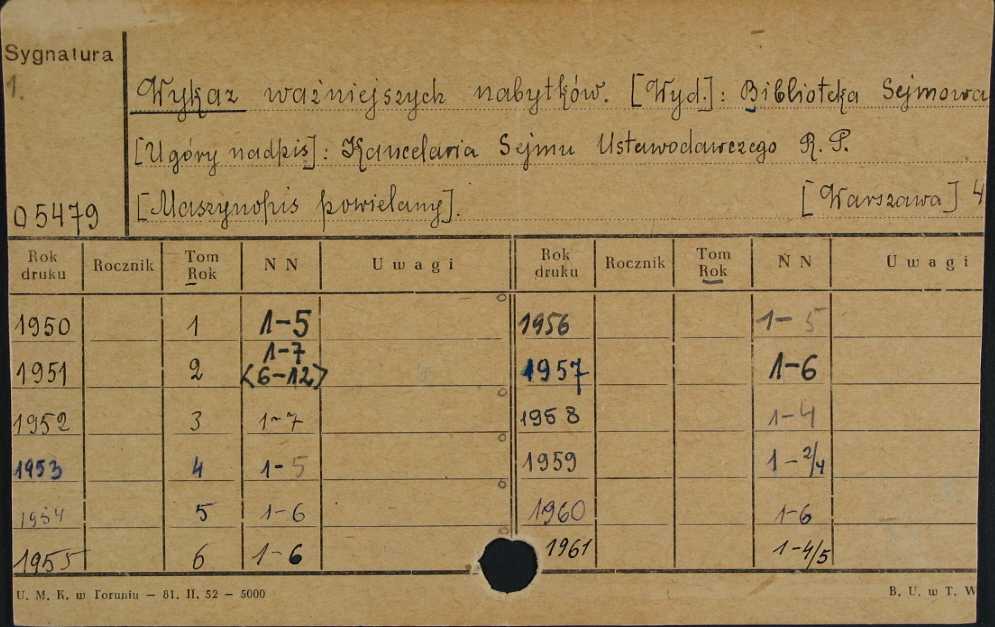 Sygnatura
1.
Wykaz ważniejszych nabytków. [Wyd.]: Biblioteka Sejmowa
[U góry nadpis]: Kancelaria Sejmu Ustawodawczego R. P.
05479 [Maszynopis powielany]. [Warszawa] 4
Rok druku Rocznik Tom Rok N N Uwagi Rok druku Rocznik Tom Rok N N Uwagi
1950 1 1-5 1956 1-5
1951 2 1-7 <6-12> 1957 1-6
1952 3 1-7 1958 1-4
1953 4 1-5 1959 1-2/4
1954 5 1-6 1960 1-6
1955 6 1-6 1961 1-4/5
U. M. K. w Toruniu — 81. II. 52 — 5000 B. U. w T. W